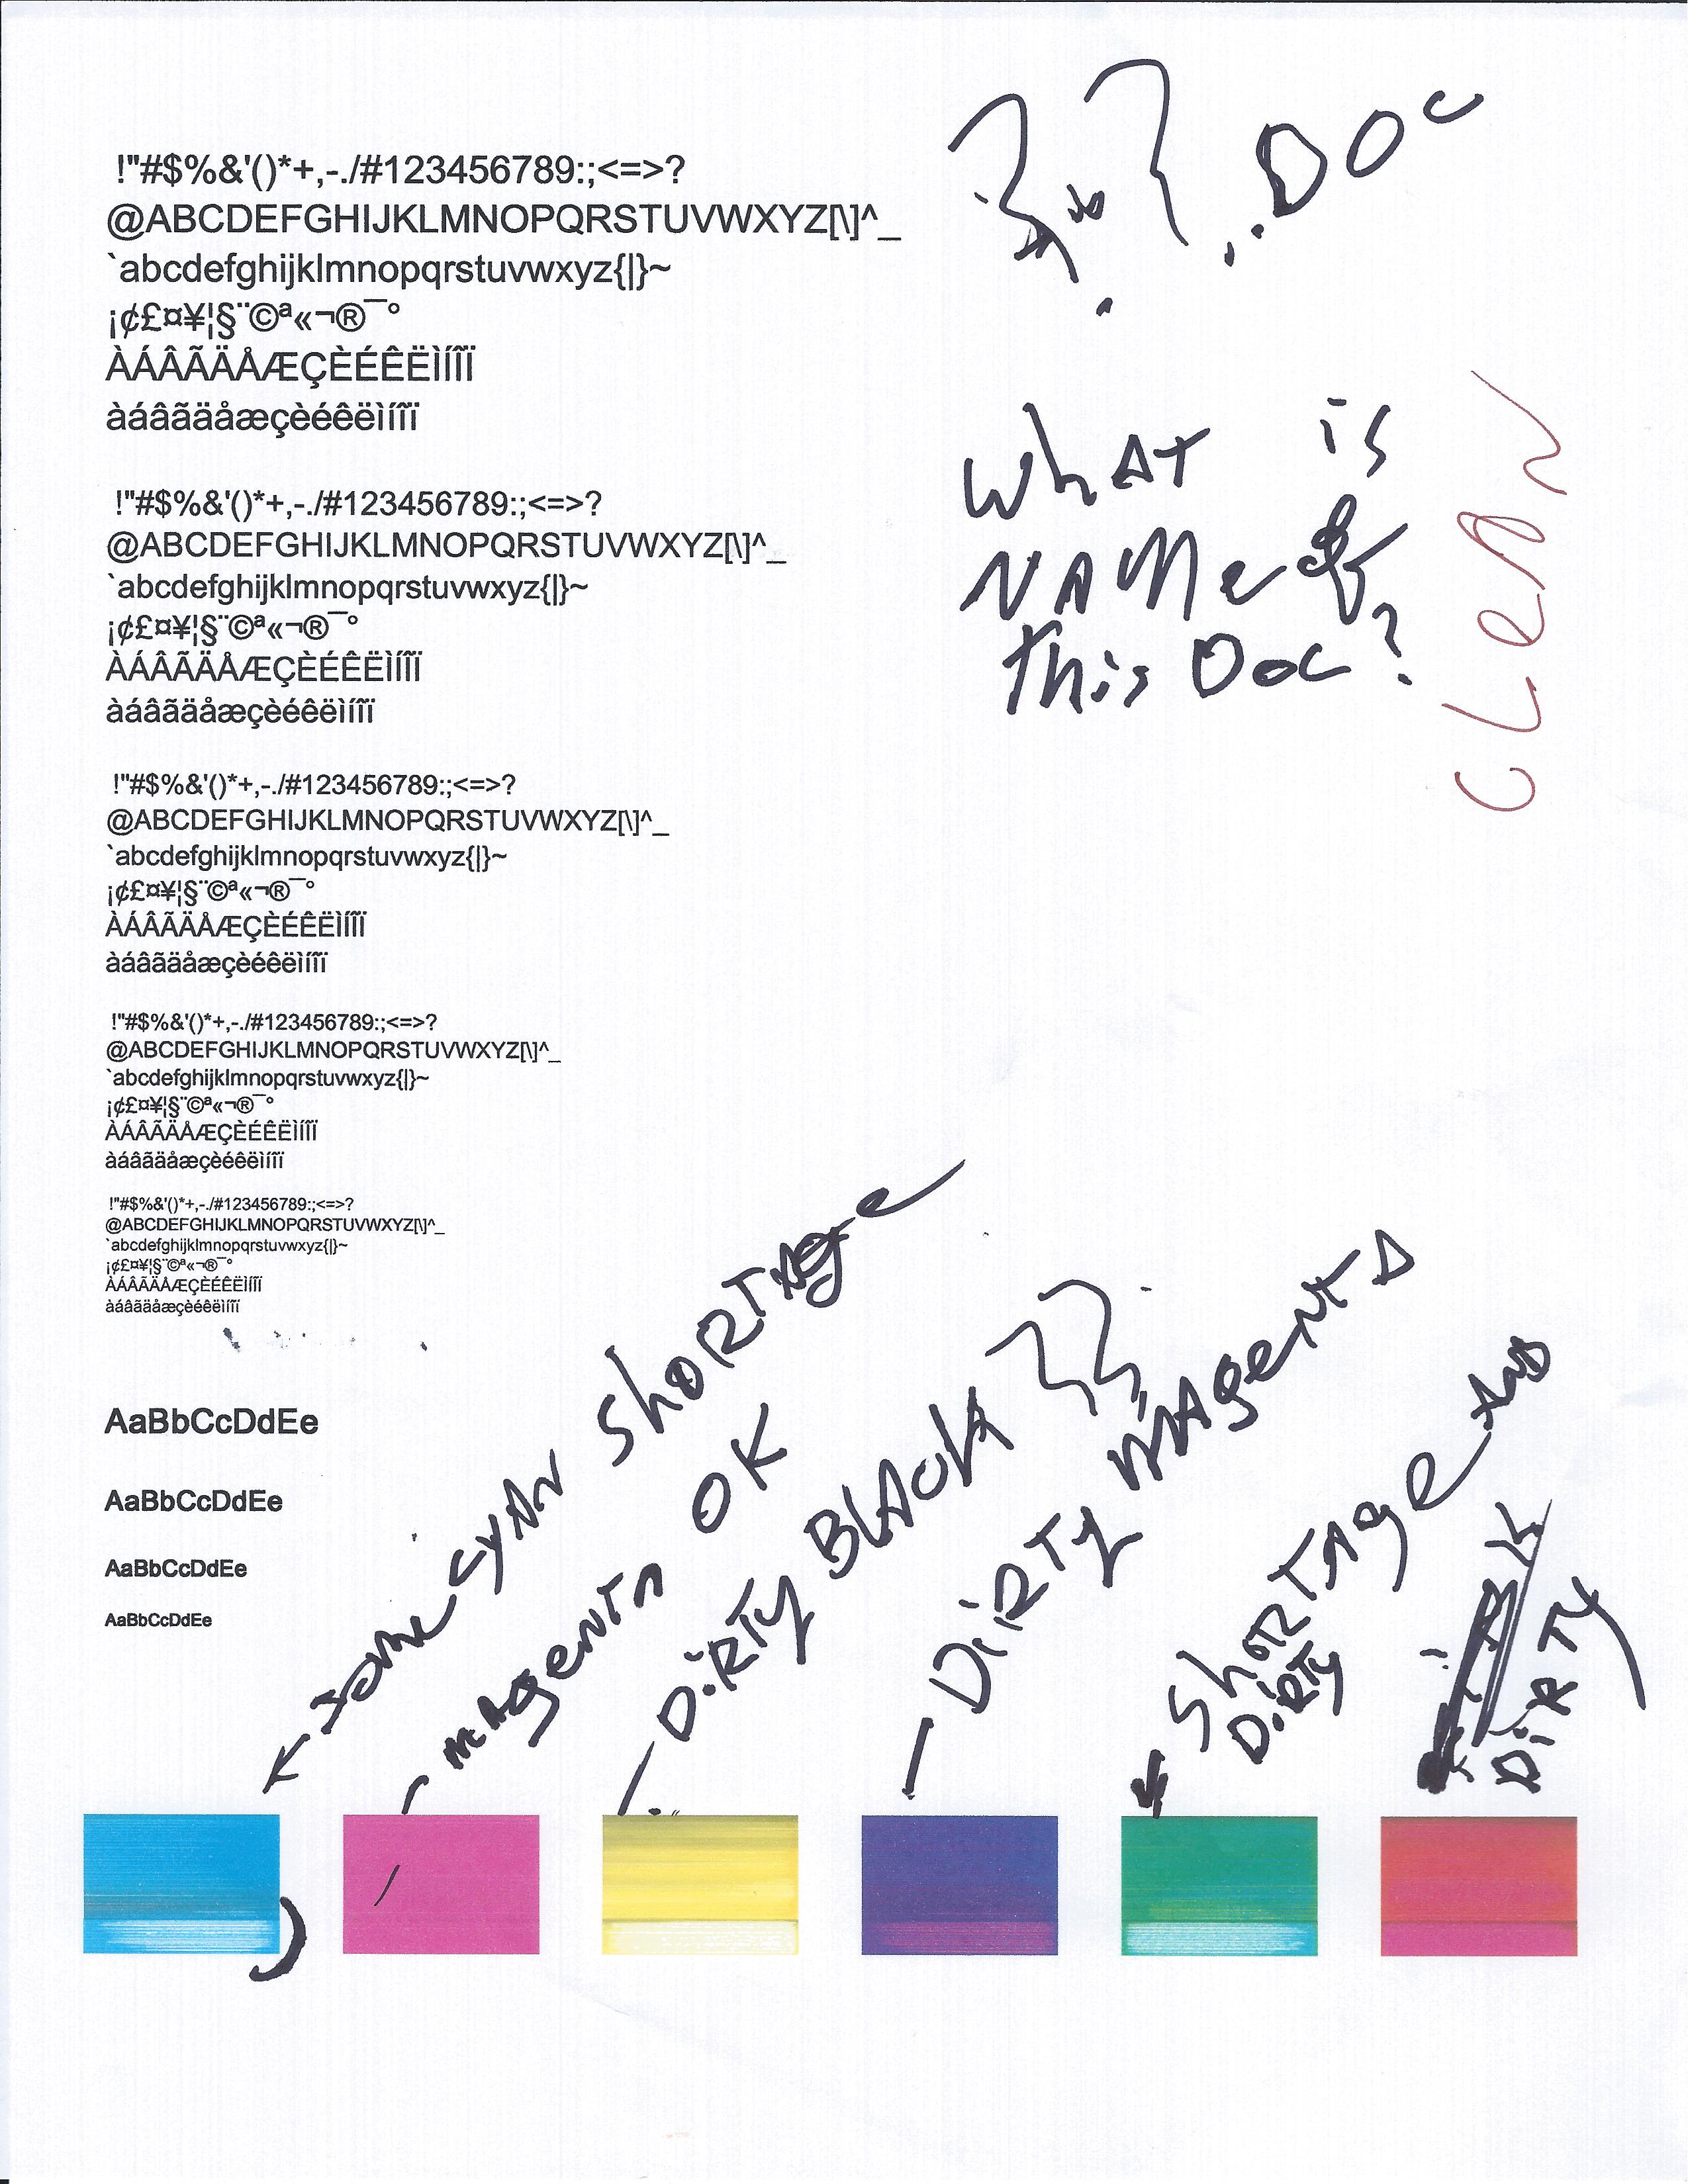 !"#$%&'()*+,-./#123456789:;<=>?
@ABCDEFGHIJKLMNOPQRSTUVWXYZ[\]^_
`abcdefghijklmnopqrstuvwxyz{|}~
¡¢£¤¥¦§¨©ª«¬®¯°
ÀÁÂÃÄÅÆÇÈÉÊËÌÍÎÏ
àáâãäåæçèéêëìíîï
!"#$%&'()*+,-./#123456789:;<=>?
@ABCDEFGHIJKLMNOPQRSTUVWXYZ[\]^_
`abcdefghijklmnopqrstuvwxyz{|}~
¡¢£¤¥¦§¨©ª«¬®¯°
ÀÁÂÃÄÅÆÇÈÉÊËÌÍÎÏ
àáâãäåæçèéêëìíîï
!"#$%&'()*+,-./#123456789:;<=>?
@ABCDEFGHIJKLMNOPQRSTUVWXYZ[\]^_
`abcdefghijklmnopqrstuvwxyz{|}~
¡¢£¤¥¦§¨©ª«¬®¯°
ÀÁÂÃÄÅÆÇÈÉÊËÌÍÎÏ
àáâãäåæçèéêëìíîï
!"#$%&'()*+,-./#123456789:;<=>?
@ABCDEFGHIJKLMNOPQRSTUVWXYZ[\]^_
`abcdefghijklmnopqrstuvwxyz{|}~
¡¢£¤¥¦§¨©ª«¬®¯°
ÀÁÂÃÄÅÆÇÈÉÊËÌÍÎÏ
àáâãäåæçèéêëìíîï
!"#$%&'()*+,-./#123456789:;<=>?
@ABCDEFGHIJKLMNOPQRSTUVWXYZ[\]^_
`abcdefghijklmnopqrstuvwxyz{|}~
¡¢£¤¥¦§¨©ª«¬®¯°
ÀÁÂÃÄÅÆÇÈÉÊËÌÍÎÏ
àáâãäåæçèéêëìíîï
AaBbCcDdEe
AaBbCcDdEe
AaBbCcDdEe
AaBbCcDdEe
??..DOC
WhAT is
NAMe of
this Doc?
CLeAN
Some CYAN ShORTAge
MAgeNTA OK
DiRTy BLACK ??
DiRTy MAgeNTA
ShORTAge AND
DiRTy
DiRTy